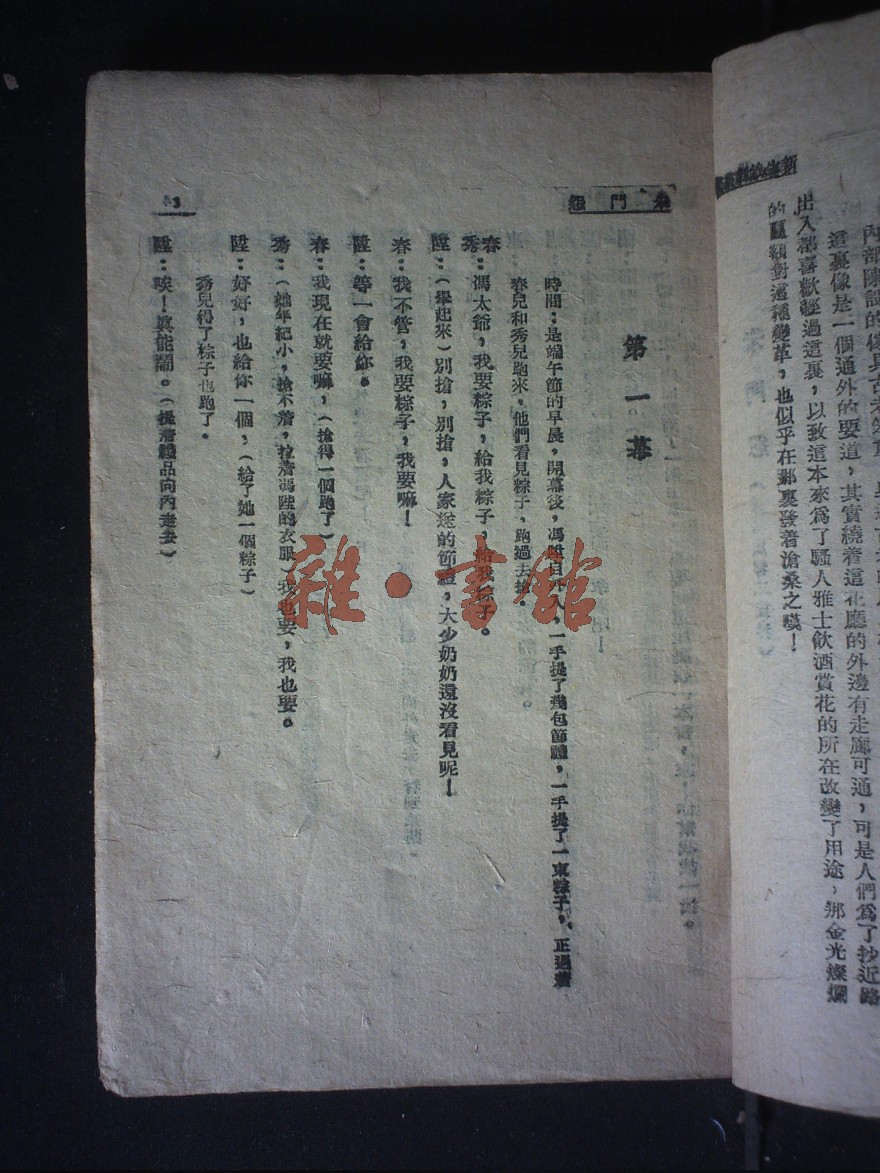 這裏像是一個通外的要道，其實繞着這花廳的外邊有走廊可通，可是人們爲了抄近路
出入都喜歡經過這裏，以致這本來爲了騷人雅士飮酒賞花的所在改變了用途，那金光燦爛
的匾額對這種變革，也似乎在那裏發着滄桑之嘆！
朱門怨
第一幕
時間：是端午節的早晨，開幕後，馮陞自外入，一手提了幾包節禮，一手提了一束粽子，正過着
春兒和秀兒跑來，他們看見粽子，跑過去搶。
春秀：馮太爺，我要粽子，給我粽子，給我粽子。
陞：（舉起來）別搶，別搶，人家送的節禮，大少奶奶還沒看見呢！
春：我不管，我要粽子，我要嘛！
陞：等一會給你。
春：我現在就要嘛，（搶得一個跑了）
秀：（她年紀小，搶不着，拉着馮陞的衣服）我也要，我也要。
陞：好好，也給你一個，（給了她一個粽子）
秀兒得了粽子也跑了。
陞：唉！眞能鬧。（提着禮品向內走去）
3
雜·書館